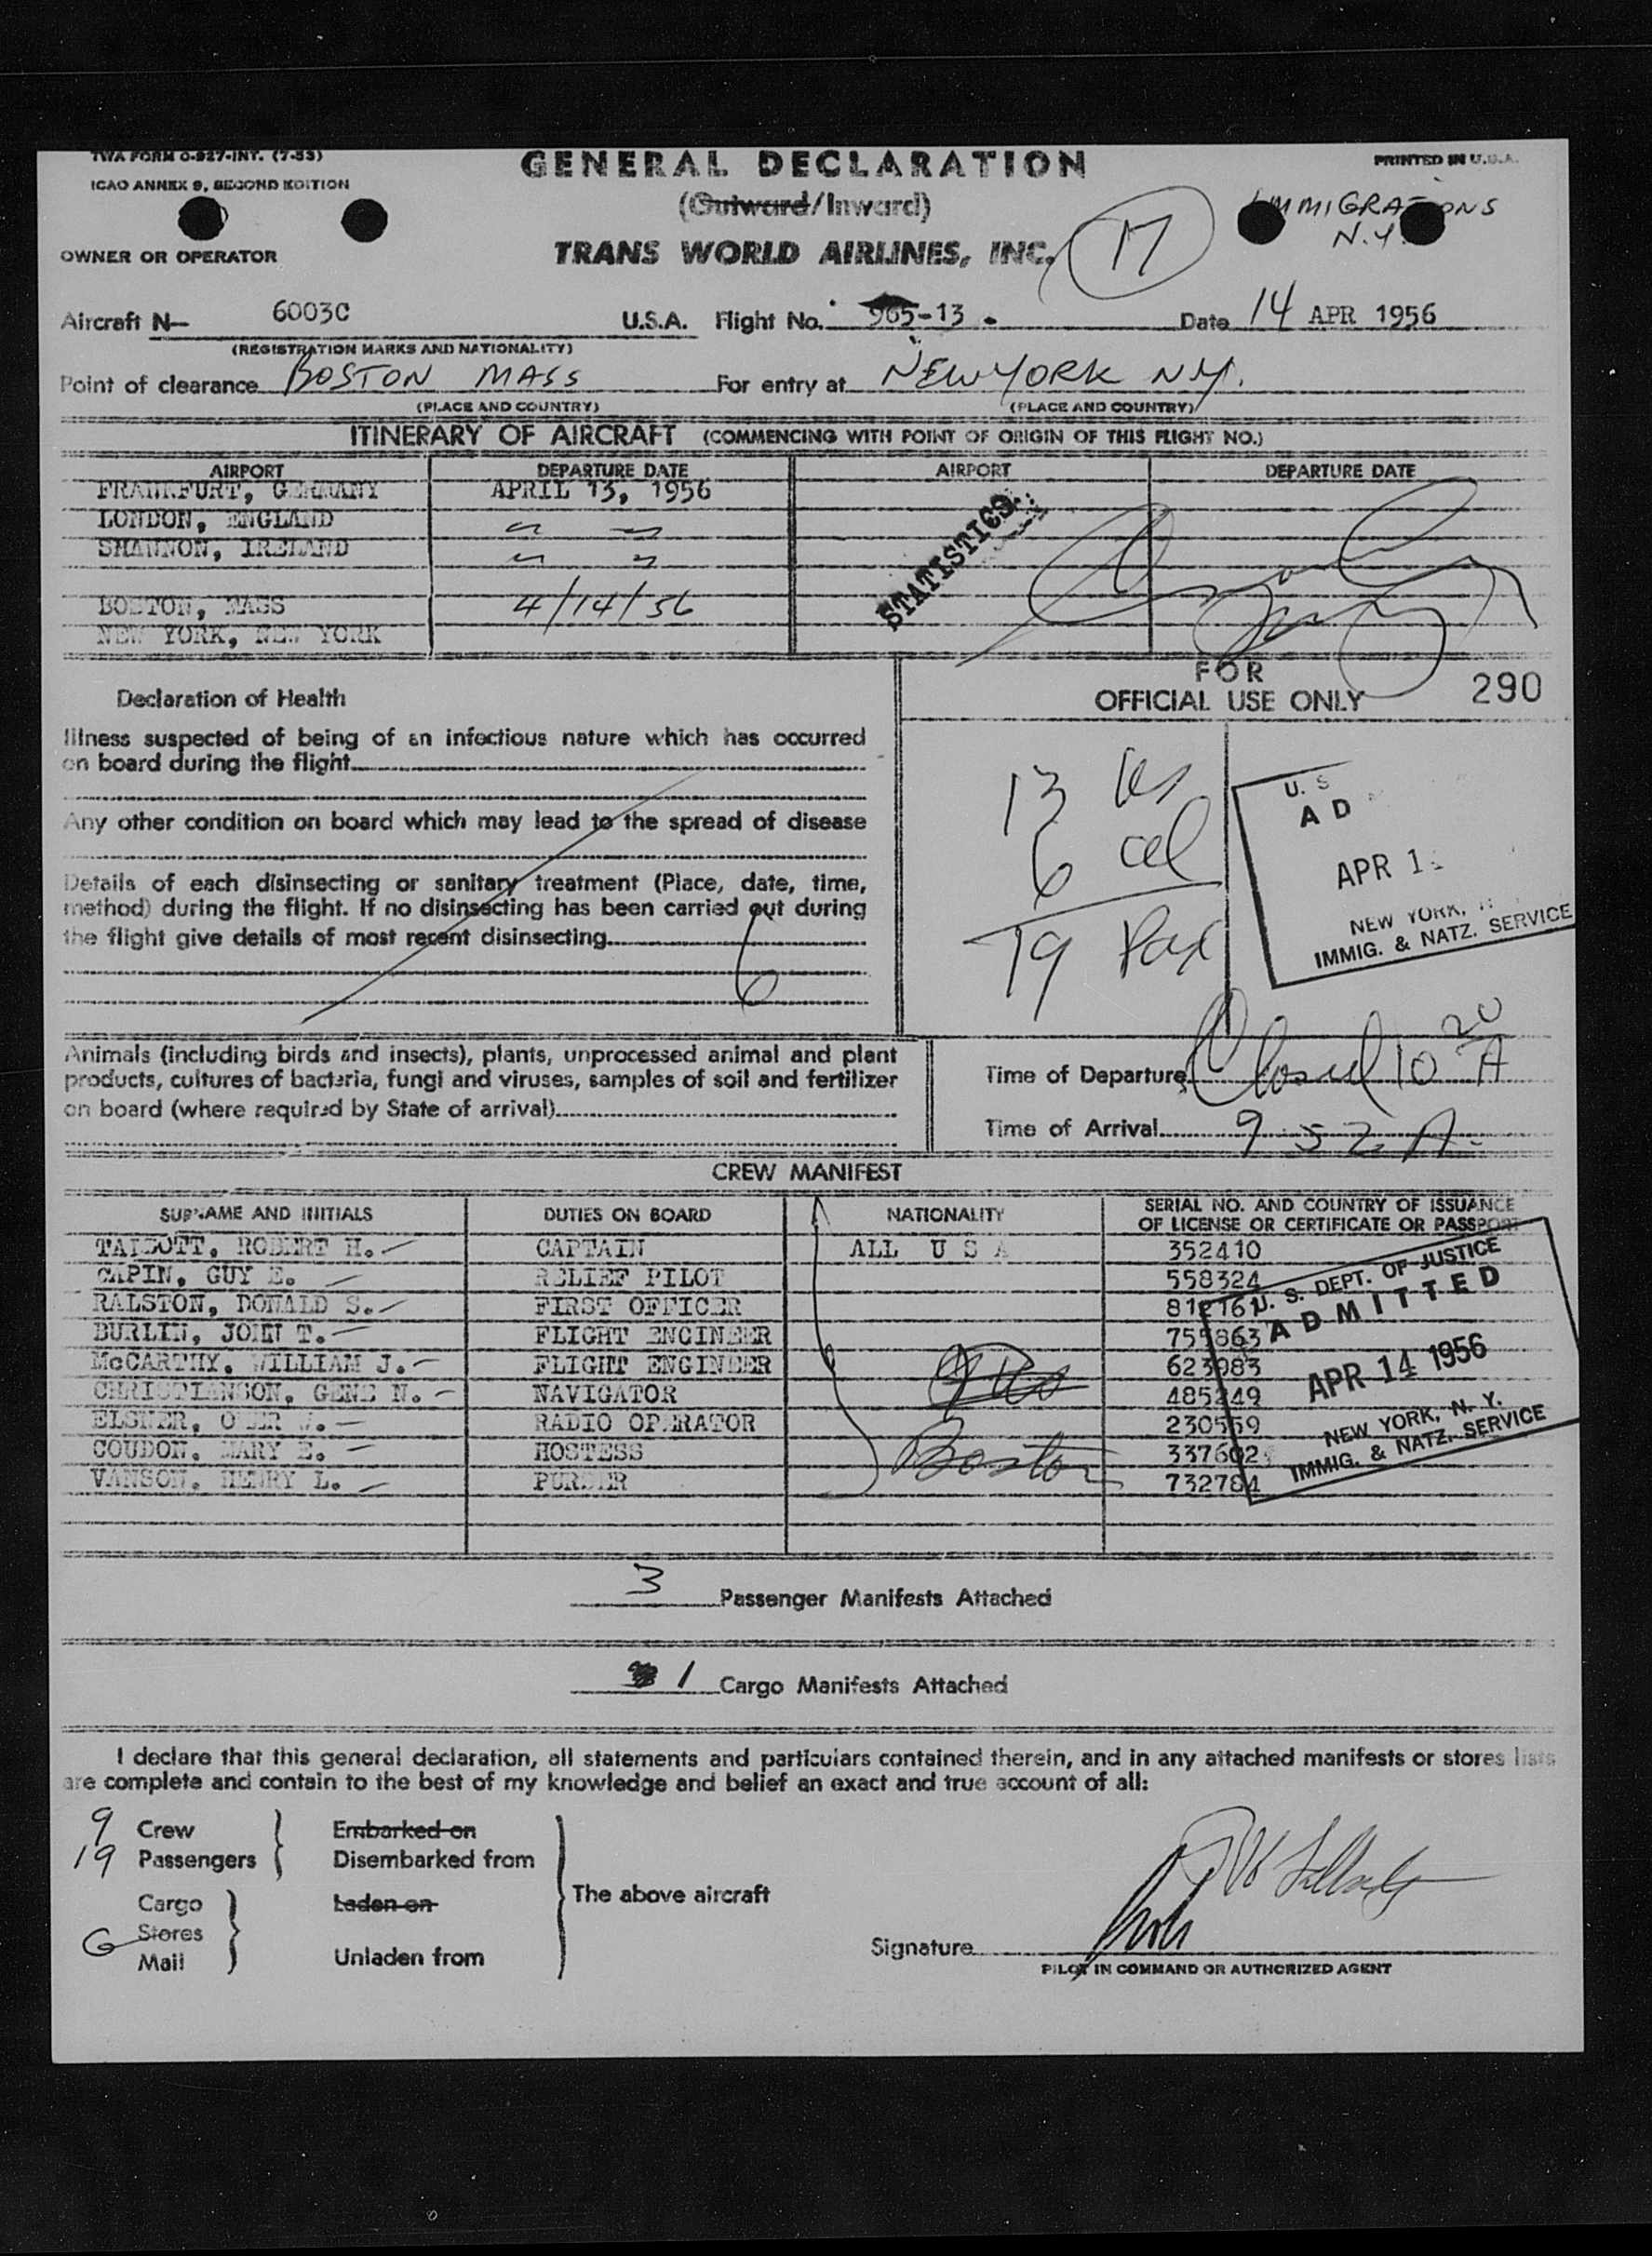 TWA FORM O-927-INT. (7-53)
GENERAL DECLARATION
PRINTED IN U.S.A.
ICAO ANNEX 9, SECOND EDITION
(Outward/Inward)
IMMIGRATIONS
N.Y.
OWNER OR OPERATOR
TRANS WORLD AIRLINES, INC.
17
Aircraft N— 6003C U.S.A. Flight No. 965-13 Date 14 APR 1956
(REGISTRATION MARKS AND NATIONALITY)
Point of clearance BOSTON MASS For entry at NEW YORK N.Y.
(PLACE AND COUNTRY) (PLACE AND COUNTRY)
ITINERARY OF AIRCRAFT (COMMENCING WITH POINT OF ORIGIN OF THIS FLIGHT NO.)
AIRPORT DEPARTURE DATE AIRPORT DEPARTURE DATE
FRANKFURT, GERMANY APRIL 13, 1956
LONDON, ENGLAND " "
SHANNON, IRELAND " "
STATISTICS
BOSTON, MASS 4/14/56
NEW YORK, NEW YORK
Declaration of Health
FOR
OFFICIAL USE ONLY
290
Illness suspected of being of an infectious nature which has occurred
on board during the flight
Any other condition on board which may lead to the spread of disease
Details of each disinsecting or sanitary treatment (Place, date, time,
method) during the flight. If no disinsecting has been carried out during
the flight give details of most recent disinsecting
13
6
19 Pax
U. S
A D
APR 1
NEW YORK,
IMMIG. & NATZ. SERVICE
Animals (including birds and insects), plants, unprocessed animal and plant
products, cultures of bacteria, fungi and viruses, samples of soil and fertilizer
on board (where required by State of arrival)
Time of Departure Closed 10 20 A
Time of Arrival 9 52 A.
CREW MANIFEST
SURNAME AND INITIALS DUTIES ON BOARD NATIONALITY SERIAL NO. AND COUNTRY OF ISSUANCE
OF LICENSE OR CERTIFICATE OR PASSPORT
TALBOTT, ROBERT H. CAPTAIN ALL U S A 352410
CAPIN, GUY E. RELIEF PILOT 558324
RALSTON, DONALD S. FIRST OFFICER
BURLIN, JOHN T. FLIGHT ENGINEER 755863
McCARTHY, WILLIAM J. FLIGHT ENGINEER 623983
CHRISTIANSON, GENE N. NAVIGATOR 485249
ELSNER, RADIO OPERATOR 230559
COUDON, MARY E. HOSTESS Boston 337602
VANSON, HENRY L. PURSER 732784
U. S. DEPT. OF JUSTICE
ADMITTED
APR 14 1956
NEW YORK, N. Y.
IMMIG. & NATZ. SERVICE
3 Passenger Manifests Attached
1 Cargo Manifests Attached
I declare that this general declaration, all statements and particulars contained therein, and in any attached manifests or stores lists
are complete and contain to the best of my knowledge and belief an exact and true account of all:
9 Crew Embarked on
19 Passengers Disembarked from
The above aircraft
Cargo Laden on
Stores
Mail Unladen from
Signature
PILOT IN COMMAND OR AUTHORIZED AGENT